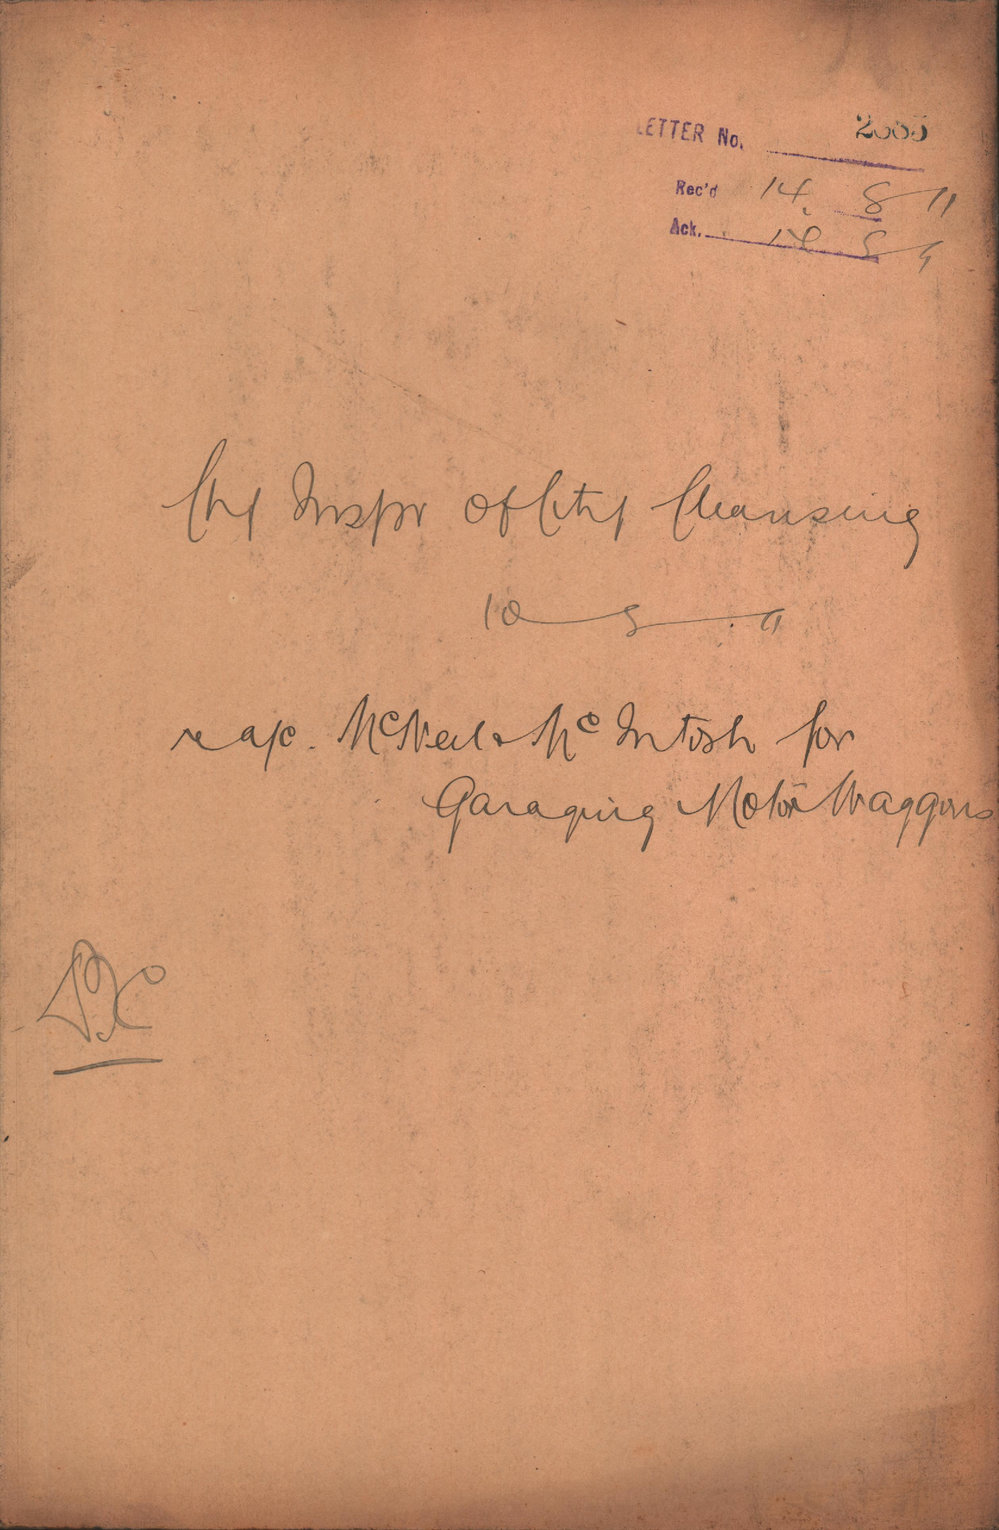 LETTER No.
Rec'd 14. 8 11
Ack. 14 8 11
Chf Inspr of City Cleansing
10 8 11
re a/c. McNeil & McIntosh for
Garaging Motor Waggons